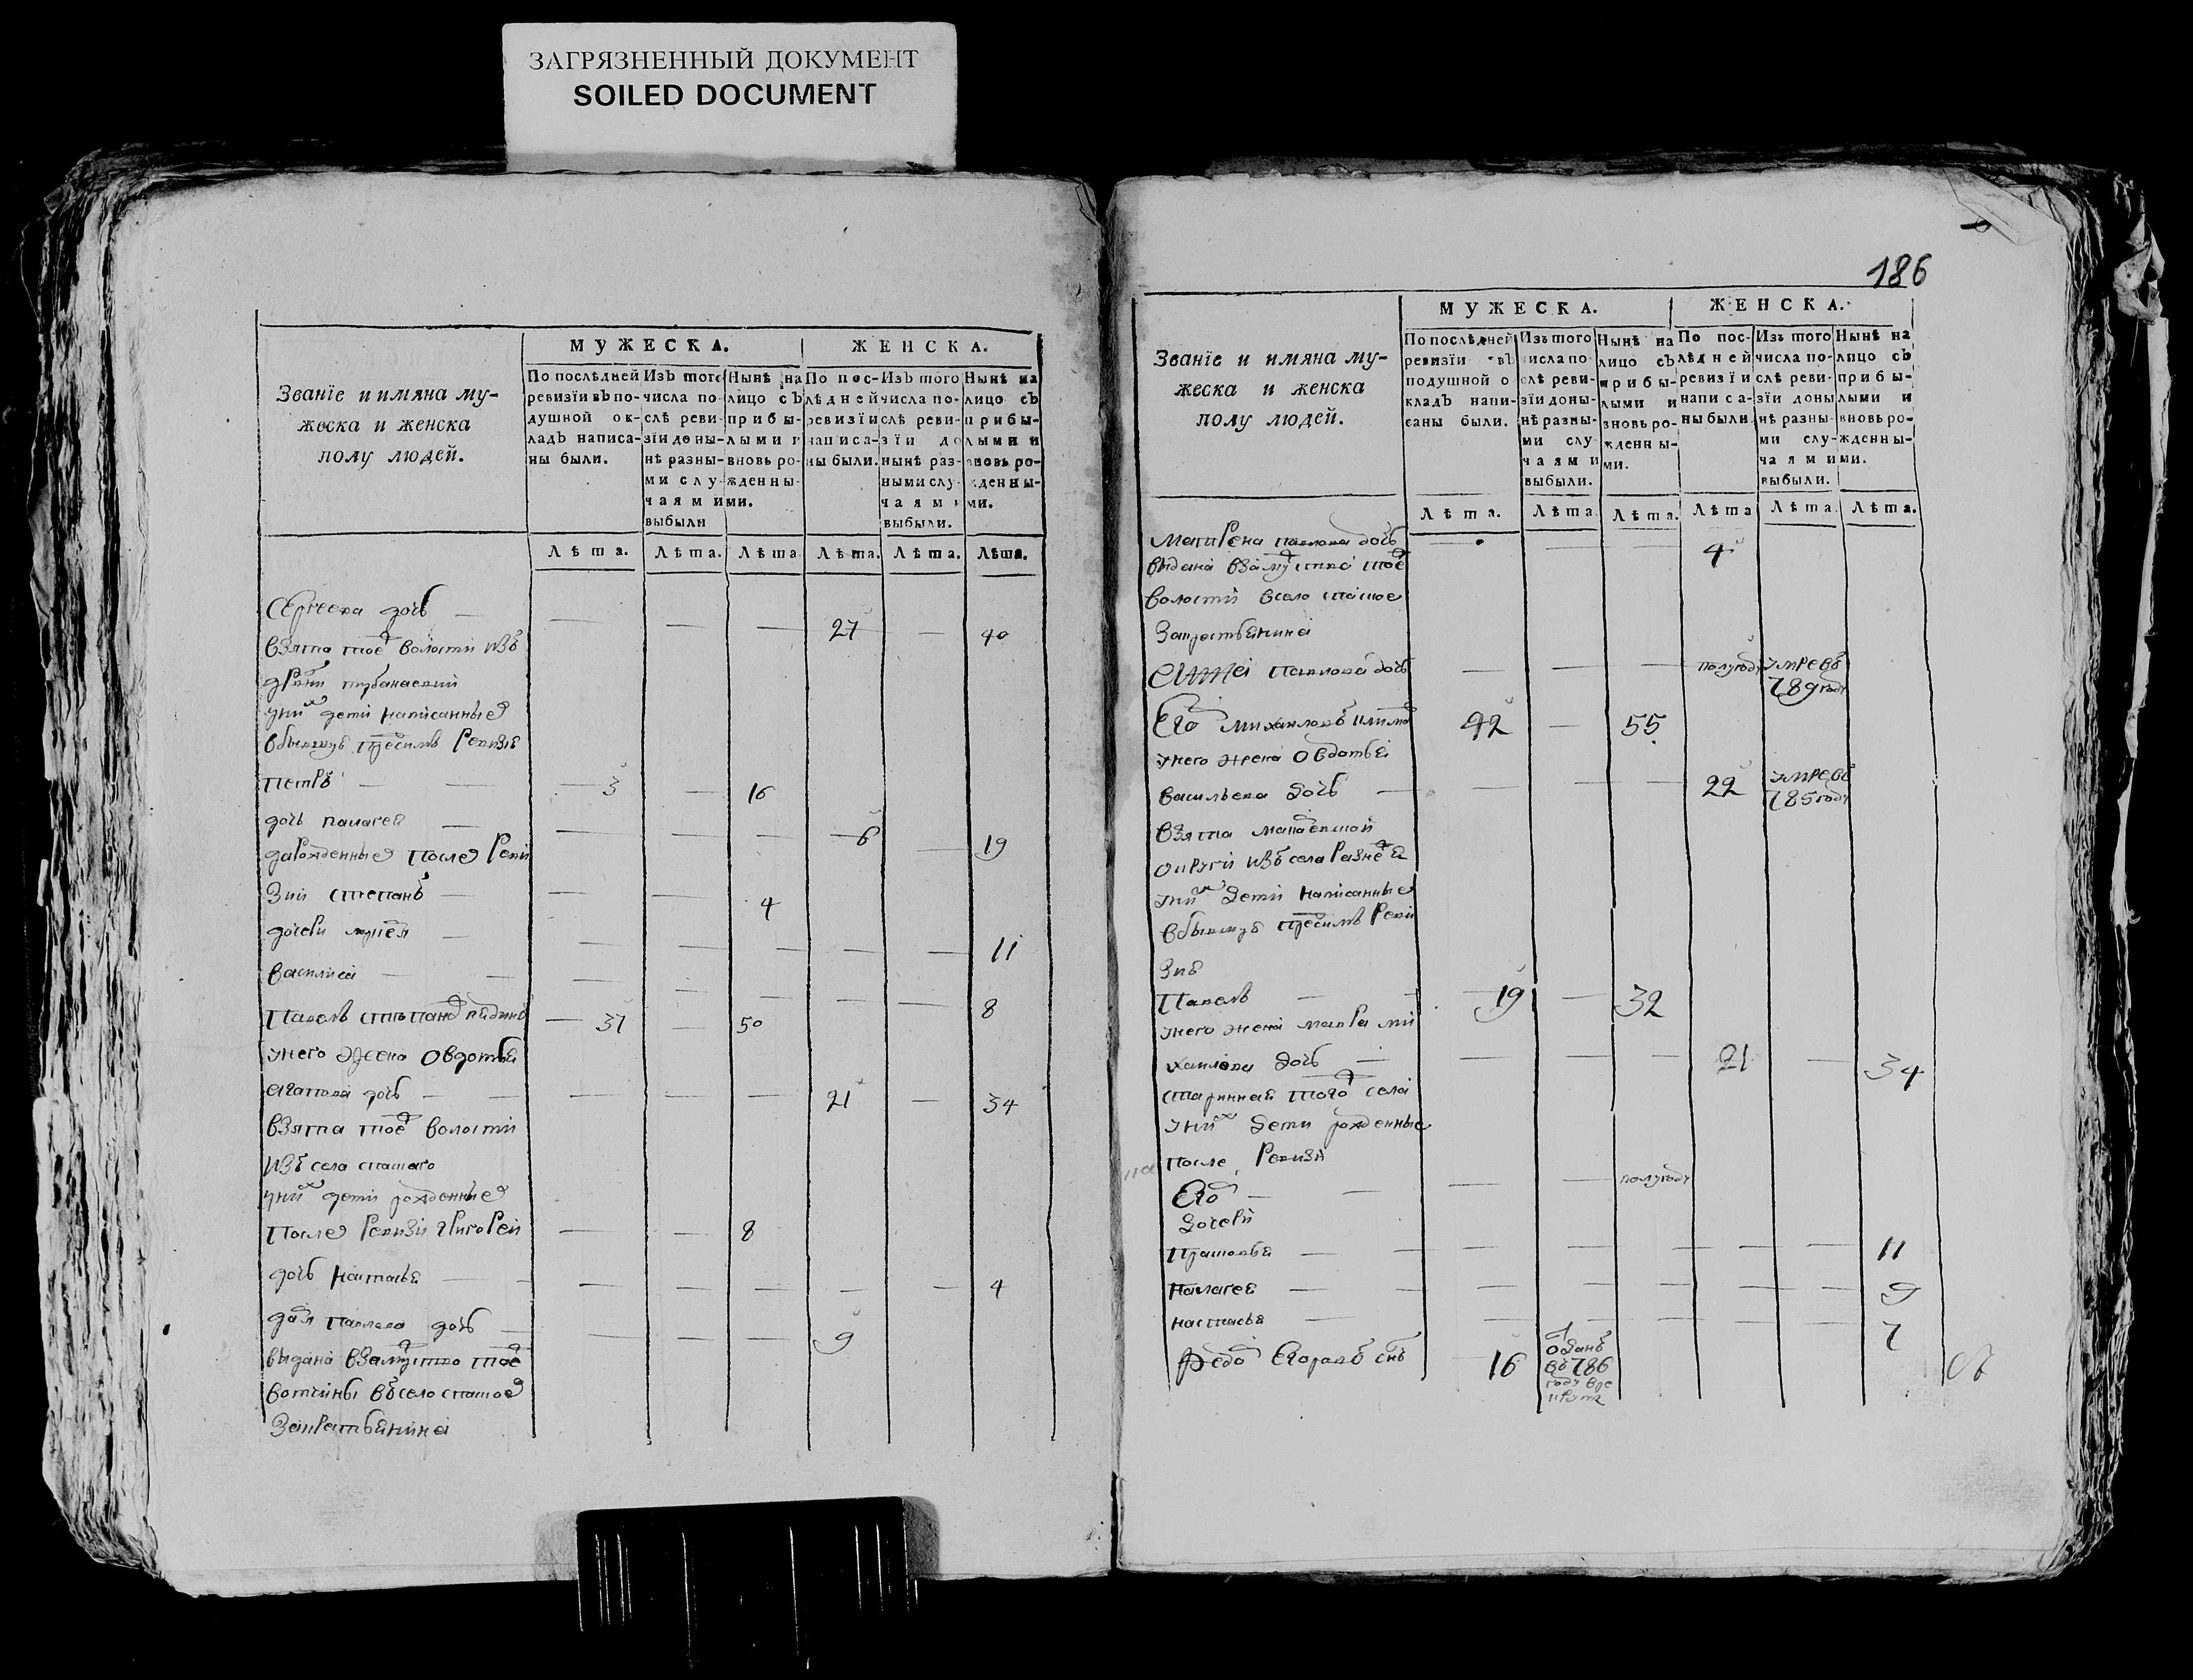 ЗАГРЯЗНЕННЫЙ ДОКУМЕНТ
SOILED DOCUMENT
Званїе и имяна му-
жеска и женска
полу людей.
МУЖЕСКА.
ЖЕНСКА.
По послѣдней ревизїи въ по-душной ок-ладъ написа-ны были.
Изъ того числа по-слѣ реви-зїи доны-нѣ разны-ми слу-чаями выбыли
Нынѣ на лицо съ прибы-лыми и вновь ро-жденны-ми.
По пос-лѣдней ревизїи написа-ны были.
Изъ того числа по-слѣ реви-зїи до нынѣ раз-ными слу-чаями выбыли.
Нынѣ на лицо съ прибы-лыми и вновь ро-жденны-ми.
Лѣта. Лѣта. Лѣта Лѣта. Лѣта. Лѣта.
Сергеева дочь — — — — 27 — 40
взята тоѣ волости изъ
дрвни
у них дети написанные
в бывшуъ пред симъ ревизiе
Петръ — 3 — 16
дочь палагея — — — 6 — 19
да рожденные после реви
зии степанъ — — — 4
дочери — — — — — — 11
василиса — — — — — 8
Павелъ степанов — 37 — 50
у него жена Овдотья
агапова дочь — — — — 21 — 34
взята тоѣ волости
изъ села спаского
у них дети рожденные
после ревизiи григорей — — 8
дочь настасья — — — — — 4
дая павлова дочь — — — — 9
выдана в замуство тоѣ
вотчины въ село спаское
за крестьянина
186
Званїе и имяна му-
жеска и женска
полу людей.
МУЖЕСКА.
ЖЕНСКА.
По послѣдней ревизїи въ подушной о кладъ напи-саны были.
Изъ того числа по слѣ реви-зїи доны-нѣ разны-ми слу чаями выбыли.
Нынѣ на лицо съ прибы-лыми и вновь ро-жденны-ми.
По пос-лѣдней ревизїи написа-ны были
Изъ того числа по-слѣ реви-зїи доны нѣ разны-ми слу-чаями выбыли.
Нынѣ на лицо съ прибы-лыми и вновь ро-жденны-ми.
Лѣта. Лѣта Лѣта. Лѣта Лѣта. Лѣта.
Матрена павлова дочь — — — 4
выдана в замуство тоѣ
волости в село спаское
за крестьянина
Анна Павлова дочь — — — полугоду умре въ 789 году
Его михаиловъ 42 — 55
у него жена Овдотья
васильева дочь — — — — 22 умре въ 785 году
взята
округи изъ села
у них дети написанные
в бывшуъ пред симъ реви
зиъ
Павелъ — — 19 — 32
у него жена мавра ми
хаилова дочь — — — — 21 — 34
старинная того села
у них дети рожденные
после ревизiи
Его — — — — полугоду
дочери
Прасковья — — — — — — — 11
Палагея — — — — — — — 9
настасья — — — — — — — 7
Федо Егоровъ снъ 16 отданъ въ 786 году в ре круты